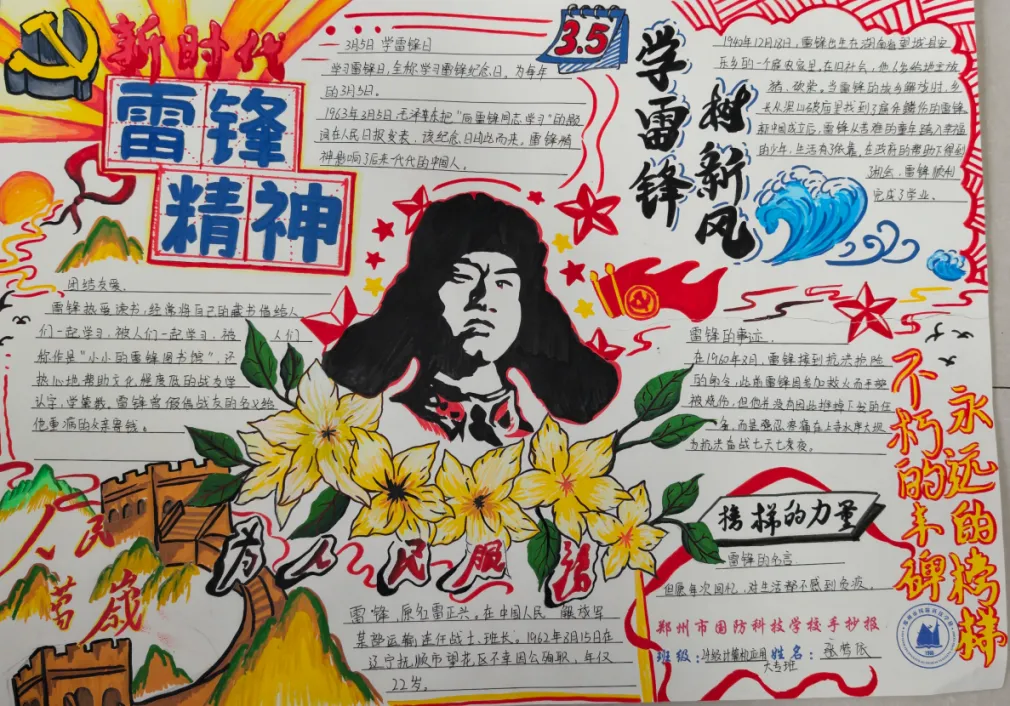 新时代
雷锋
精神
3月5日 学雷锋日
学习雷锋日,全称学习雷锋纪念日,为每年
的3月5日。
1963年3月5日,毛泽东把"向雷锋同志学习"的题
词在人民日报发表,该纪念日因此而来。雷锋精
神影响了后来一代代的中国人。
3.5
学雷锋
树新风
1940年12月18日,雷锋出生在湖南省望城县安
乐乡的一个贫农家里。在旧社会,他6岁给地主放
猪、砍柴。当雷锋的故乡解放时,乡
长从深山破庙里找到了遍体鳞伤的雷锋
新中国成立后,雷锋从苦难的童年踏入幸福
的少年,生活有了依靠。在政府的帮助下得到
机会,雷锋顺利
完成了学业。
团结友爱、
雷锋热爱读书,经常将自己的藏书借给人
们一起学习,被人们一起学习,被 人们
称作是"小小的雷锋图书馆",还
热心地帮助文化程度低的战友学
认字,学算数。雷锋曾假借战友的名义给
他重病的父亲寄钱。
雷锋的事迹
在1960年8月,雷锋接到抗洪抢险
的命令,此前雷锋因参加救火而手
被烧伤,但他并没有因此推掉下发的任
务,而是强忍疼痛在上寺水库大坝
为抗洪奋战七天七夜。
不朽的丰碑
永远的榜样
人民
万岁
为人民服务
榜样的力量
雷锋的名言
但愿每次回忆,对生活都不感到负疚。
雷锋,原名雷正兴,在中国人民 解放军
某部运输连任战士、班长。1962年8月15日在
辽宁抚顺市望花区不幸因公殉职,年仅
22岁。
郑州市国防科技学校手抄报
班级: 级计算机应用 姓名:
大专班